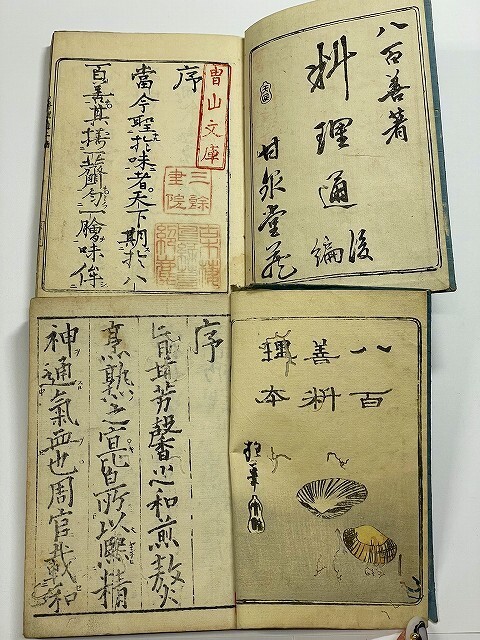 八百善著
料理通 後編
甘泉堂蔵
曺山文庫
三餘書院
序
當今聖於味者。天下期於八
百善其擣虀勻膾味侔
八百
善料
理本
序
芳馨必和煎熬
烹熟之宜皆所以熙精
神通氣血也周官載和